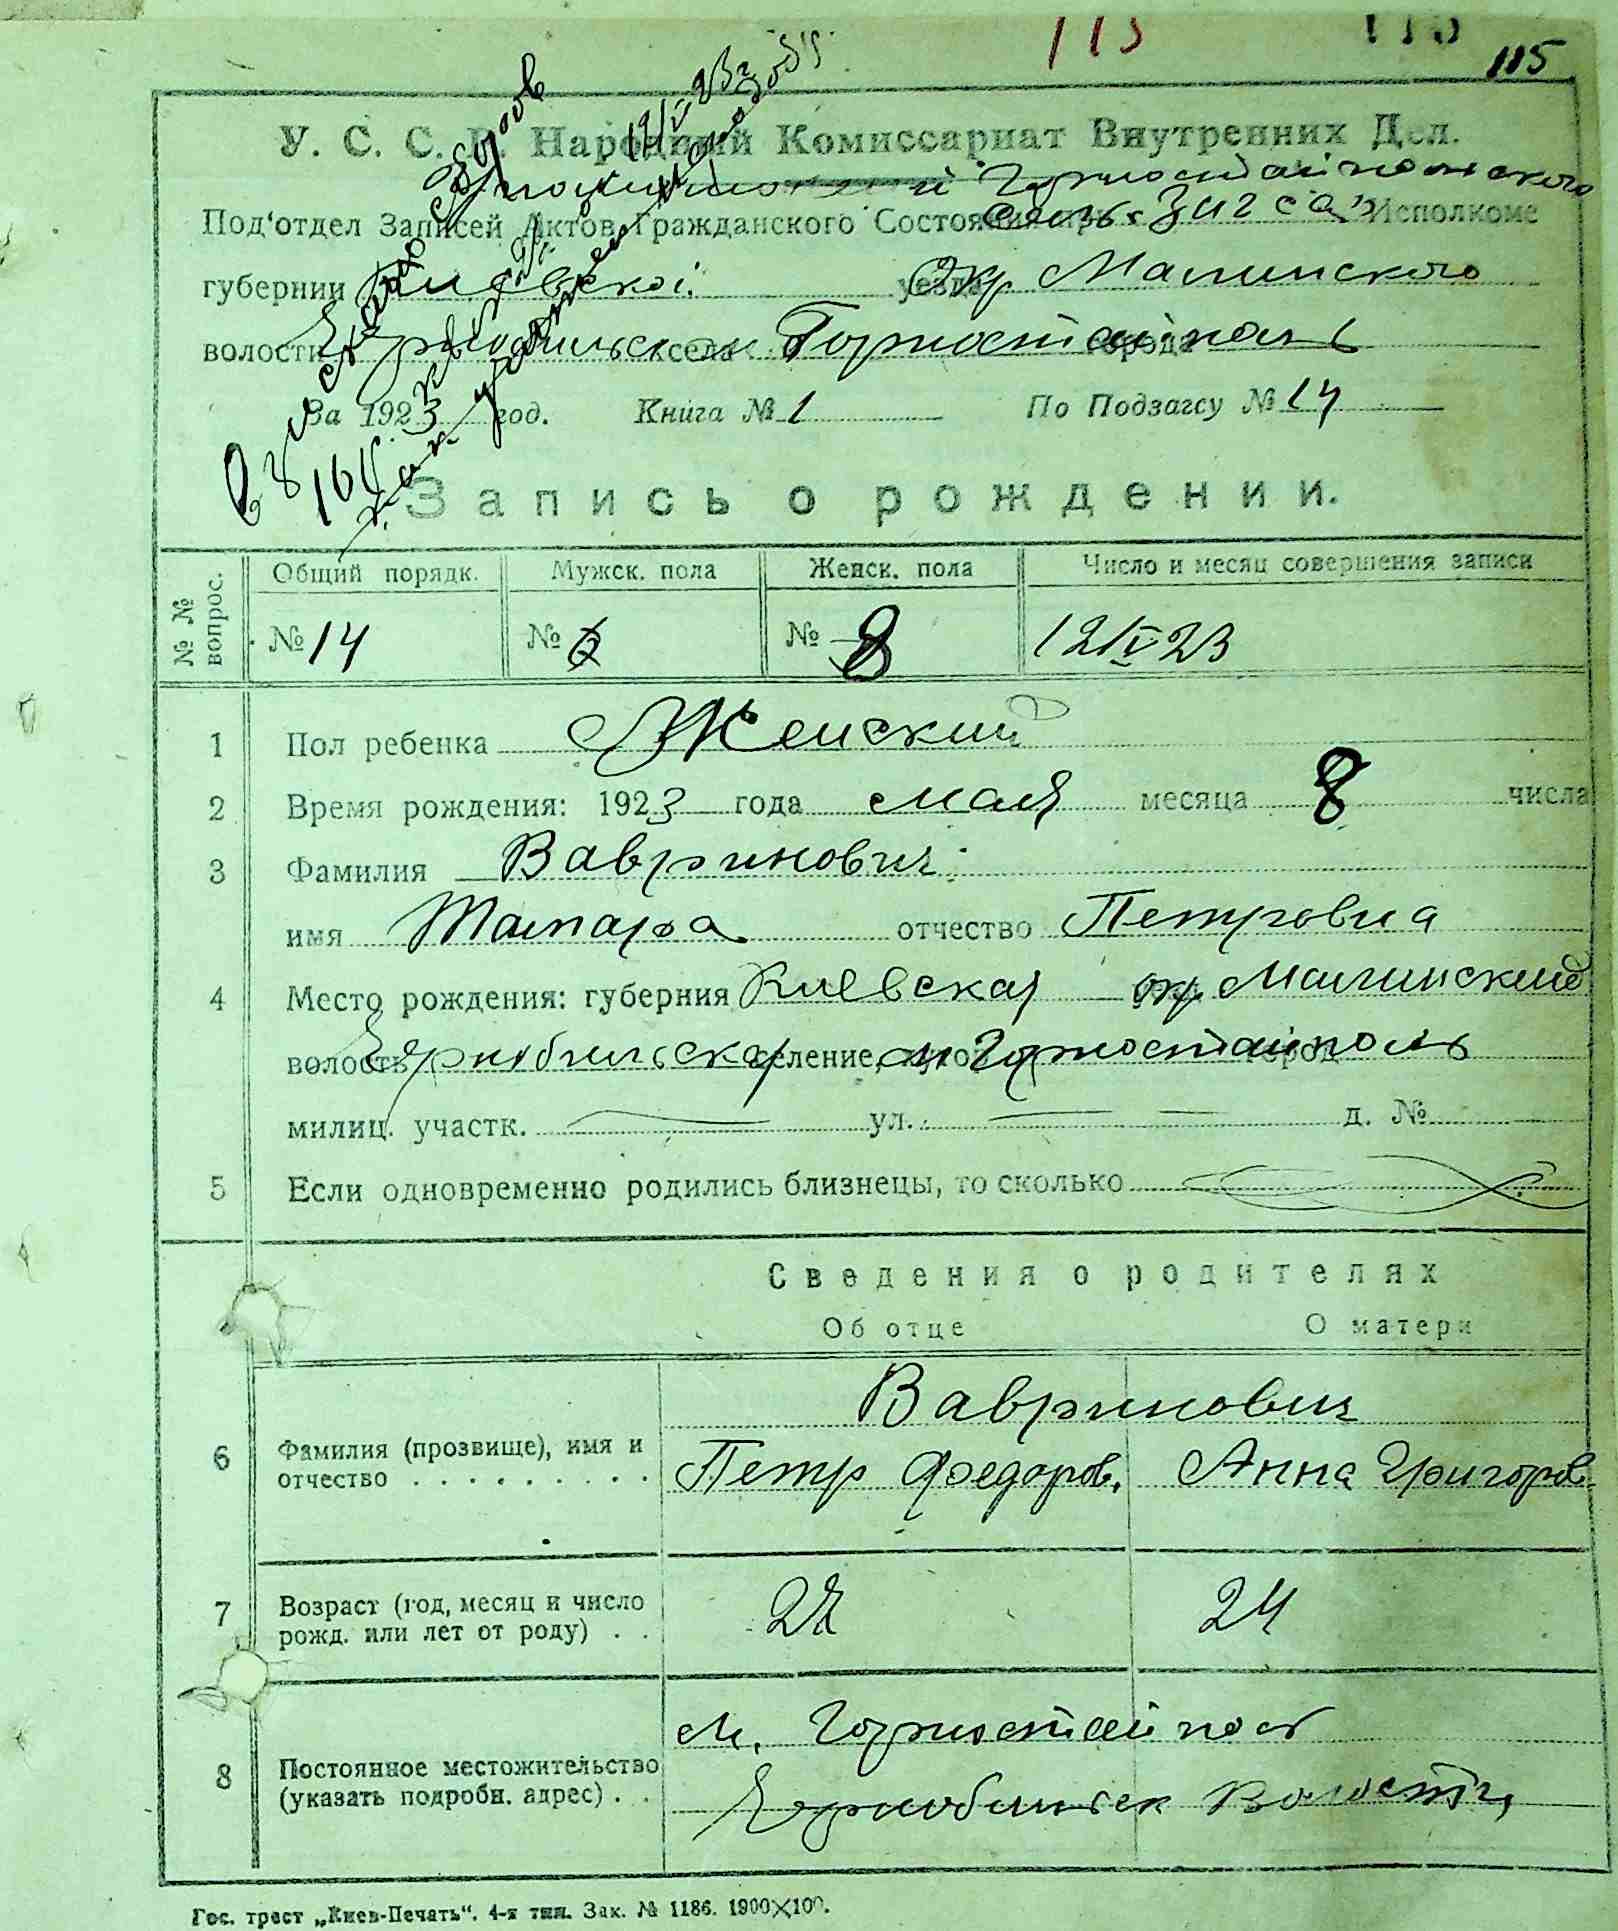 115
115
У. С. С. Р. Народный Комиссариат Внутренних Дел.
Горностайпольского
Под'отдел Записей Актов Гражданского Состояния при сель. Загса Исполкоме
губернии Киевской уезда Окр Малинского
волости Чернобильск села м Горностайполь города
За 1923 год. Книга № 1 По Подзагсу № 14
Запись о рождении.
№ № вопрос. Общий порядк. Мужск. пола Женск. пола Число и месяц совершения записи
№ 14 № 6 № 8 12/V 23
1 Пол ребенка Женский
2 Время рождения: 1923 года мая месяца 8 числа
3 Фамилия Вавринович
имя Тамара отчество Петровна
4 Место рождения: губерния Киевская окр. Малинский
волость Чернобильская селение, м Горностайполь город
милиц. участк. ул. д. №
5 Если одновременно родились близнецы, то сколько
Сведения о родителях
Об отце О матери
Вавринович
6 Фамилия (прозвище), имя и
отчество . . . . . . . . . Петр Федоров. Анна Григоров.
7 Возраст (год, месяц и число
рожд. или лет от роду) . . 27 24
м. Горностайпол
8 Постоянное местожительство
(указать подробн. адрес) . . Чернобильск Волости
Гос. трест „Киев-Печать“. 4-я тип. Зак. № 1186. 1900×100.